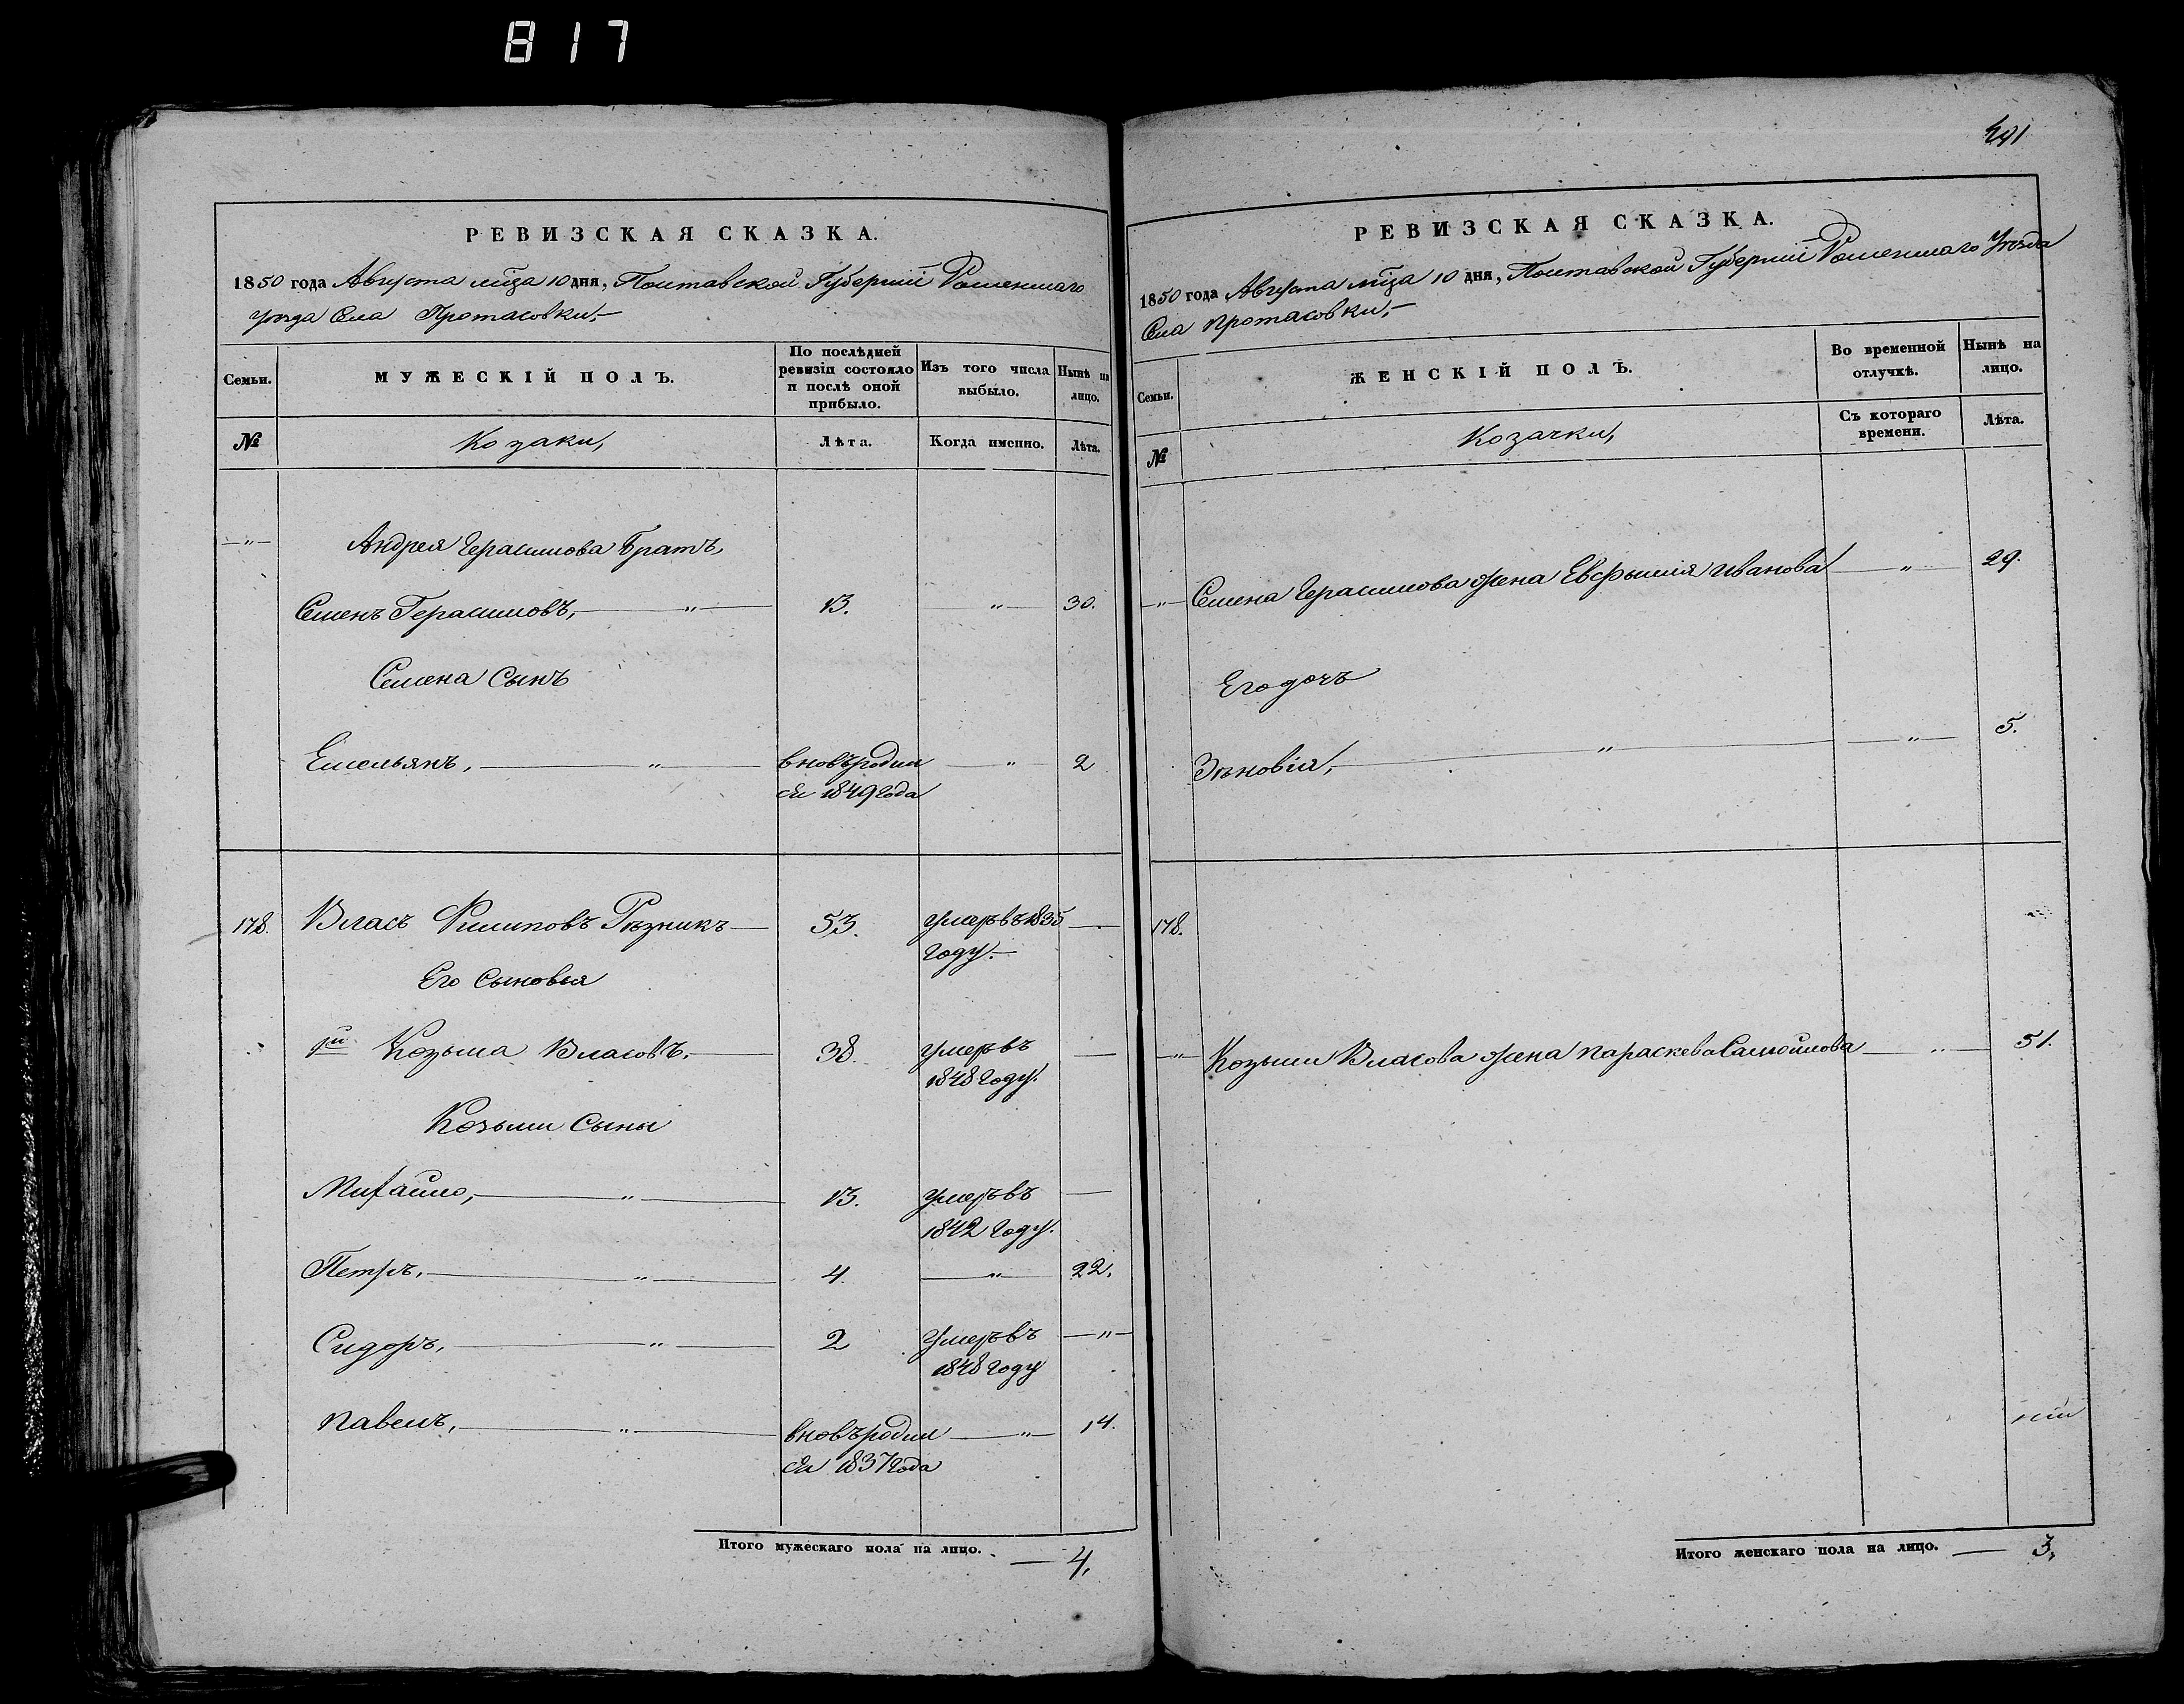 817
РЕВИЗСКАЯ СКАЗКА.
1850 года Августа мца 10 дня, Полтавской Губернии Роменшаго
уезда Села Протасовки,
Семьи.
МУЖЕСКІЙ ПОЛЪ.
По послѣдней ревизіи состояло и послѣ оной прибыло.
Изъ того числа выбыло.
Нынѣ на лицо.
№
Козаки,
Лѣта.
Когда именно.
Лѣта.
—"— Андрея Герасимова Братъ,
Семенъ Герасимовъ, —"— 13. "— 30.
Семена Сынъ
Емельянъ, —"— вновьродил —"— 2
ся 1849 года
178. Власъ Филиповъ Рѣзникъ— 53. умеръвъ1835 —
году.—
Его Сыновья
1й Козьма Власовъ,— 38. умеръвъ —
1848 году.
Козьми Сыны
Михайло, —"— 13. умеръвъ —
1842 году.
Петръ, —"— 4. —"— 22.
Сидоръ, —"— 2 умеръвъ —"—
1848 году
Павелъ, —"— вновьродил —"— 14.
ся 1837 года
Итого мужескаго пола на лицо. — 4,
РЕВИЗСКАЯ СКАЗКА.
1850 года Августа мца 10 дня, Полтавской Губернии Роменшаго Уезда
Села Протасовки,—
Семьи.
ЖЕНСКІЙ ПОЛЪ.
Во временной отлучкѣ.
Нынѣ на лицо.
№
Козачки,
Съ котораго времени.
Лѣта.
—"— Семена Герасимова жена Евфимия Иванова —"— 29.
Его дочь
Зѣновія, —"— —"— 5.
178.
—"— Козьми Власова жена Параскева Самойлова —"— 51.
Итого женскаго пола на лицо. — 3,